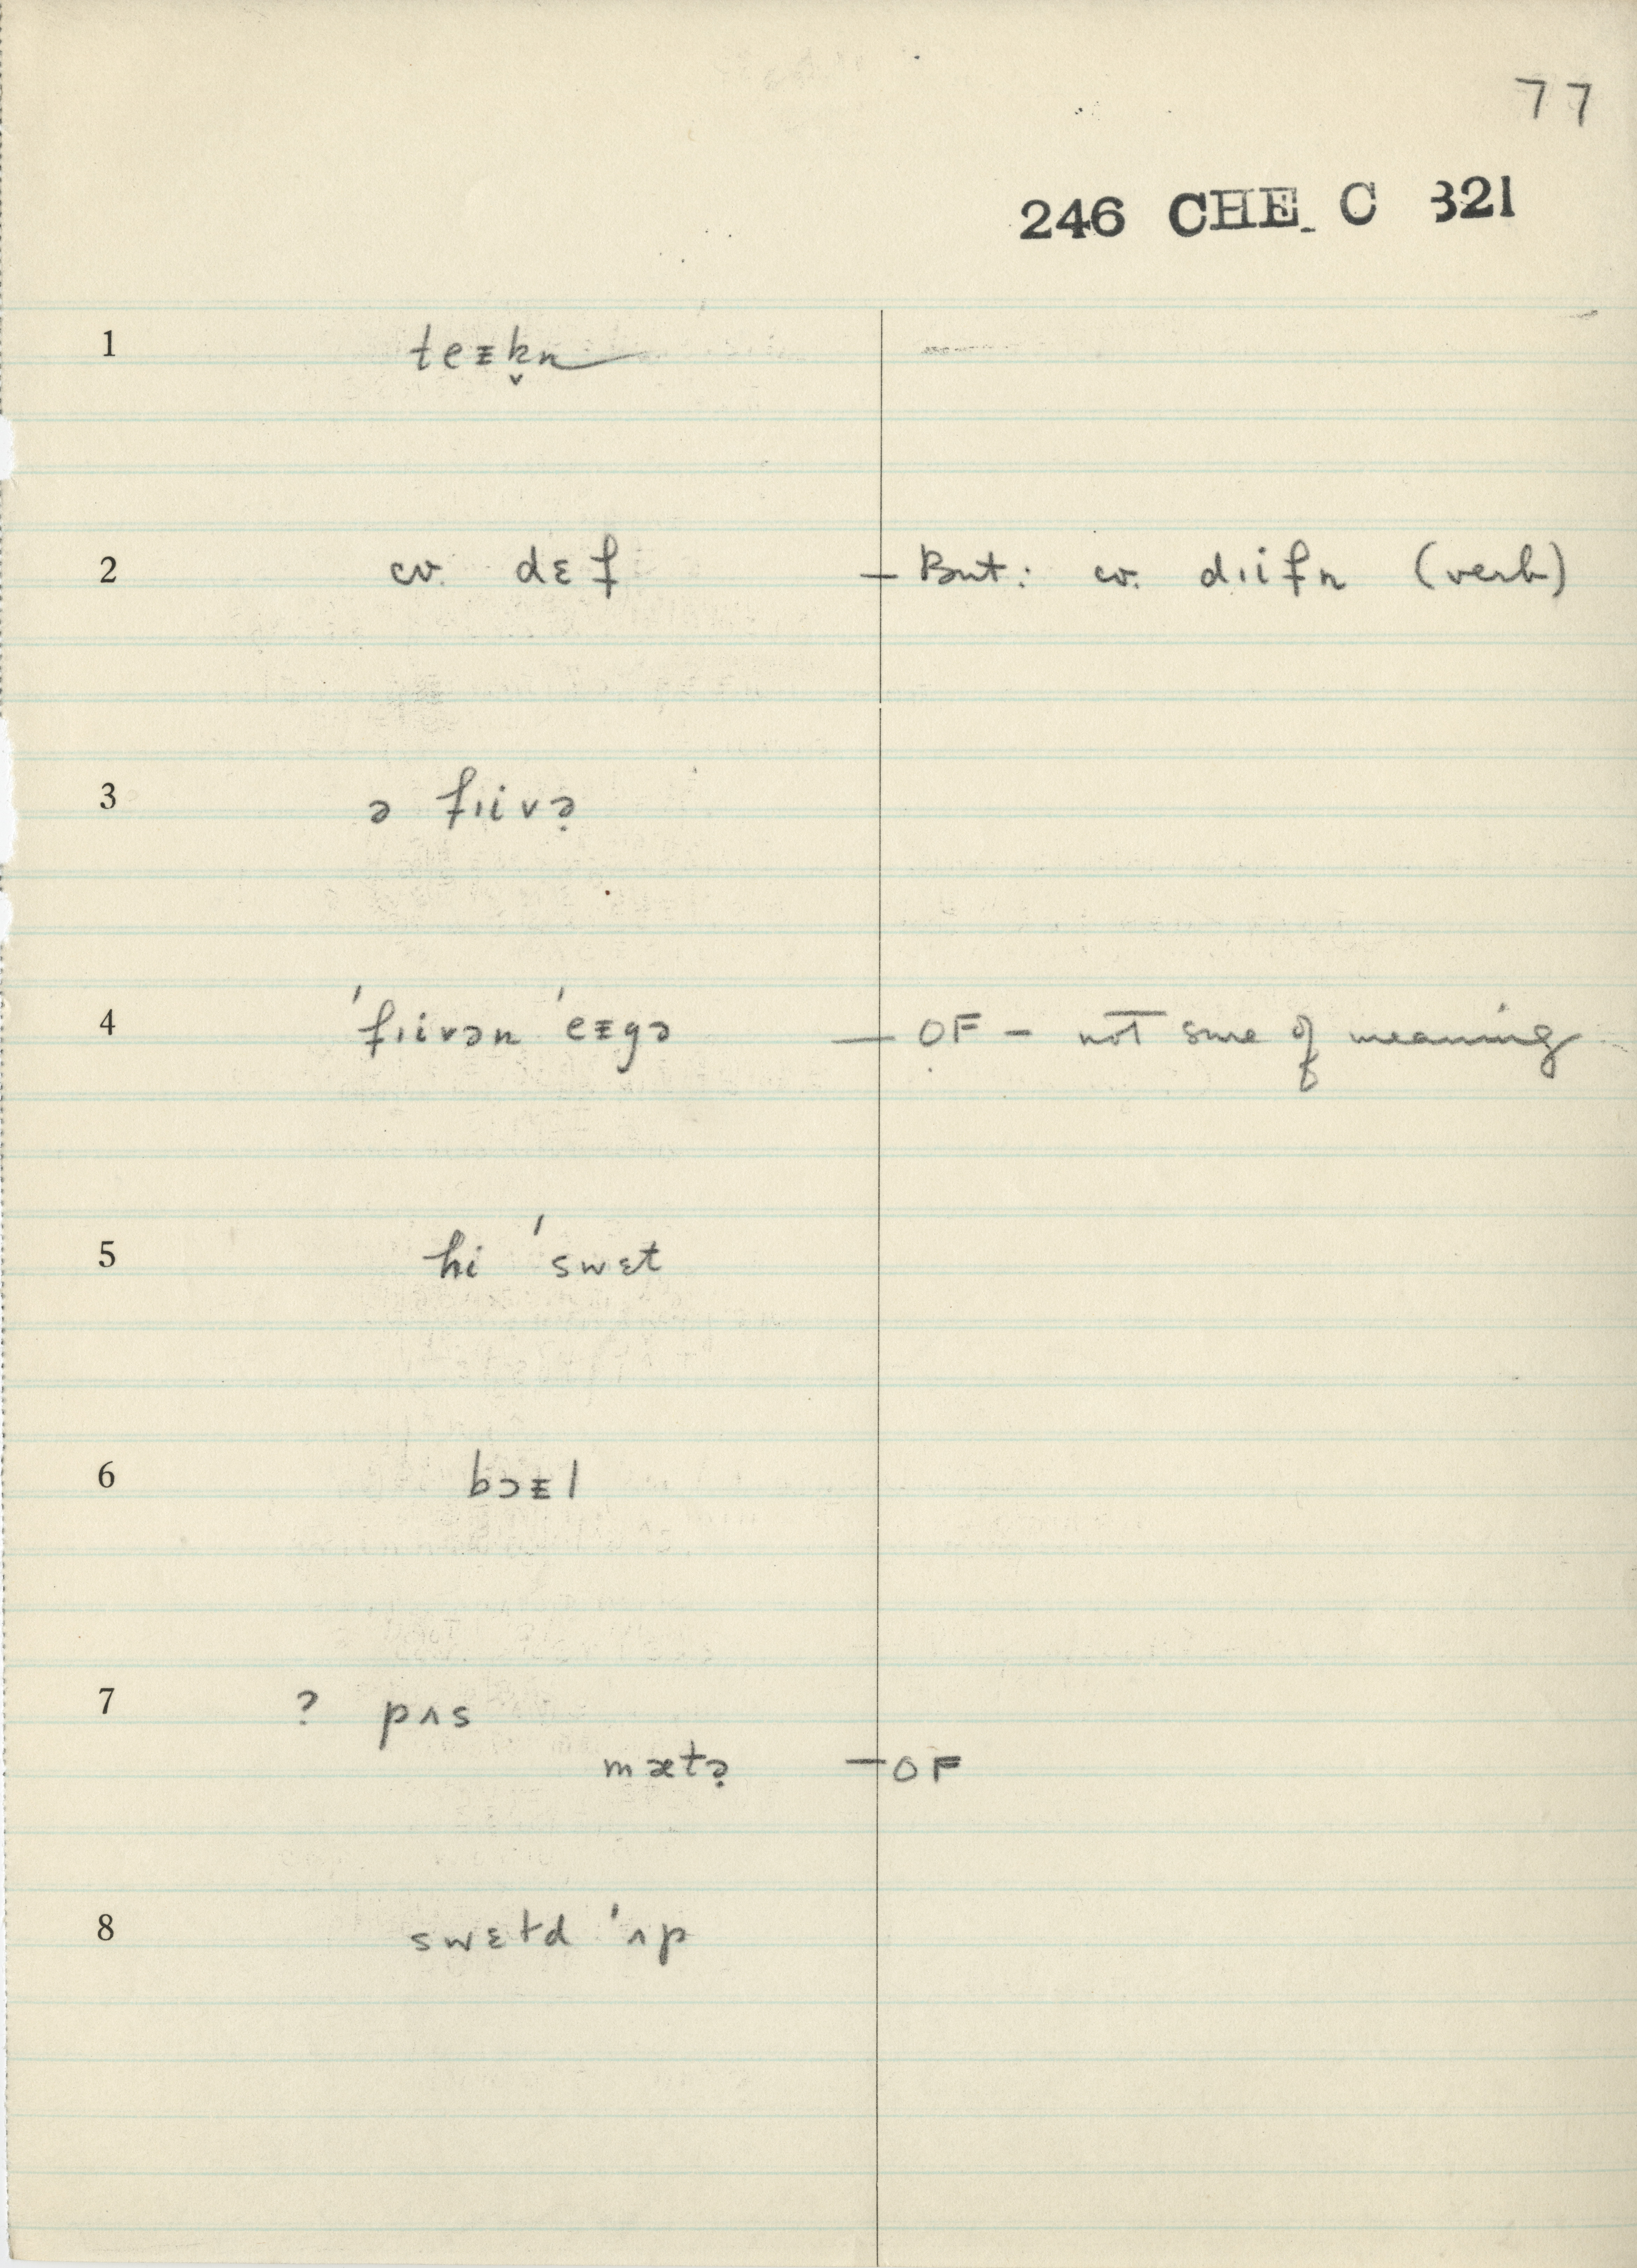 77
246 CHE C 321
1 teᵻk̬n
2 cv. dɛf — But: cv. dɪifn (verb)
3 ə fɪivə̣
4 ˈfɪivən ˈeᵻgə — OF – not sure of meaning
5 hi ˈswɛt
6 bɔᵻl
7 ? pʌs
mætə̣ — OF
8 swɛtd ˈʌp